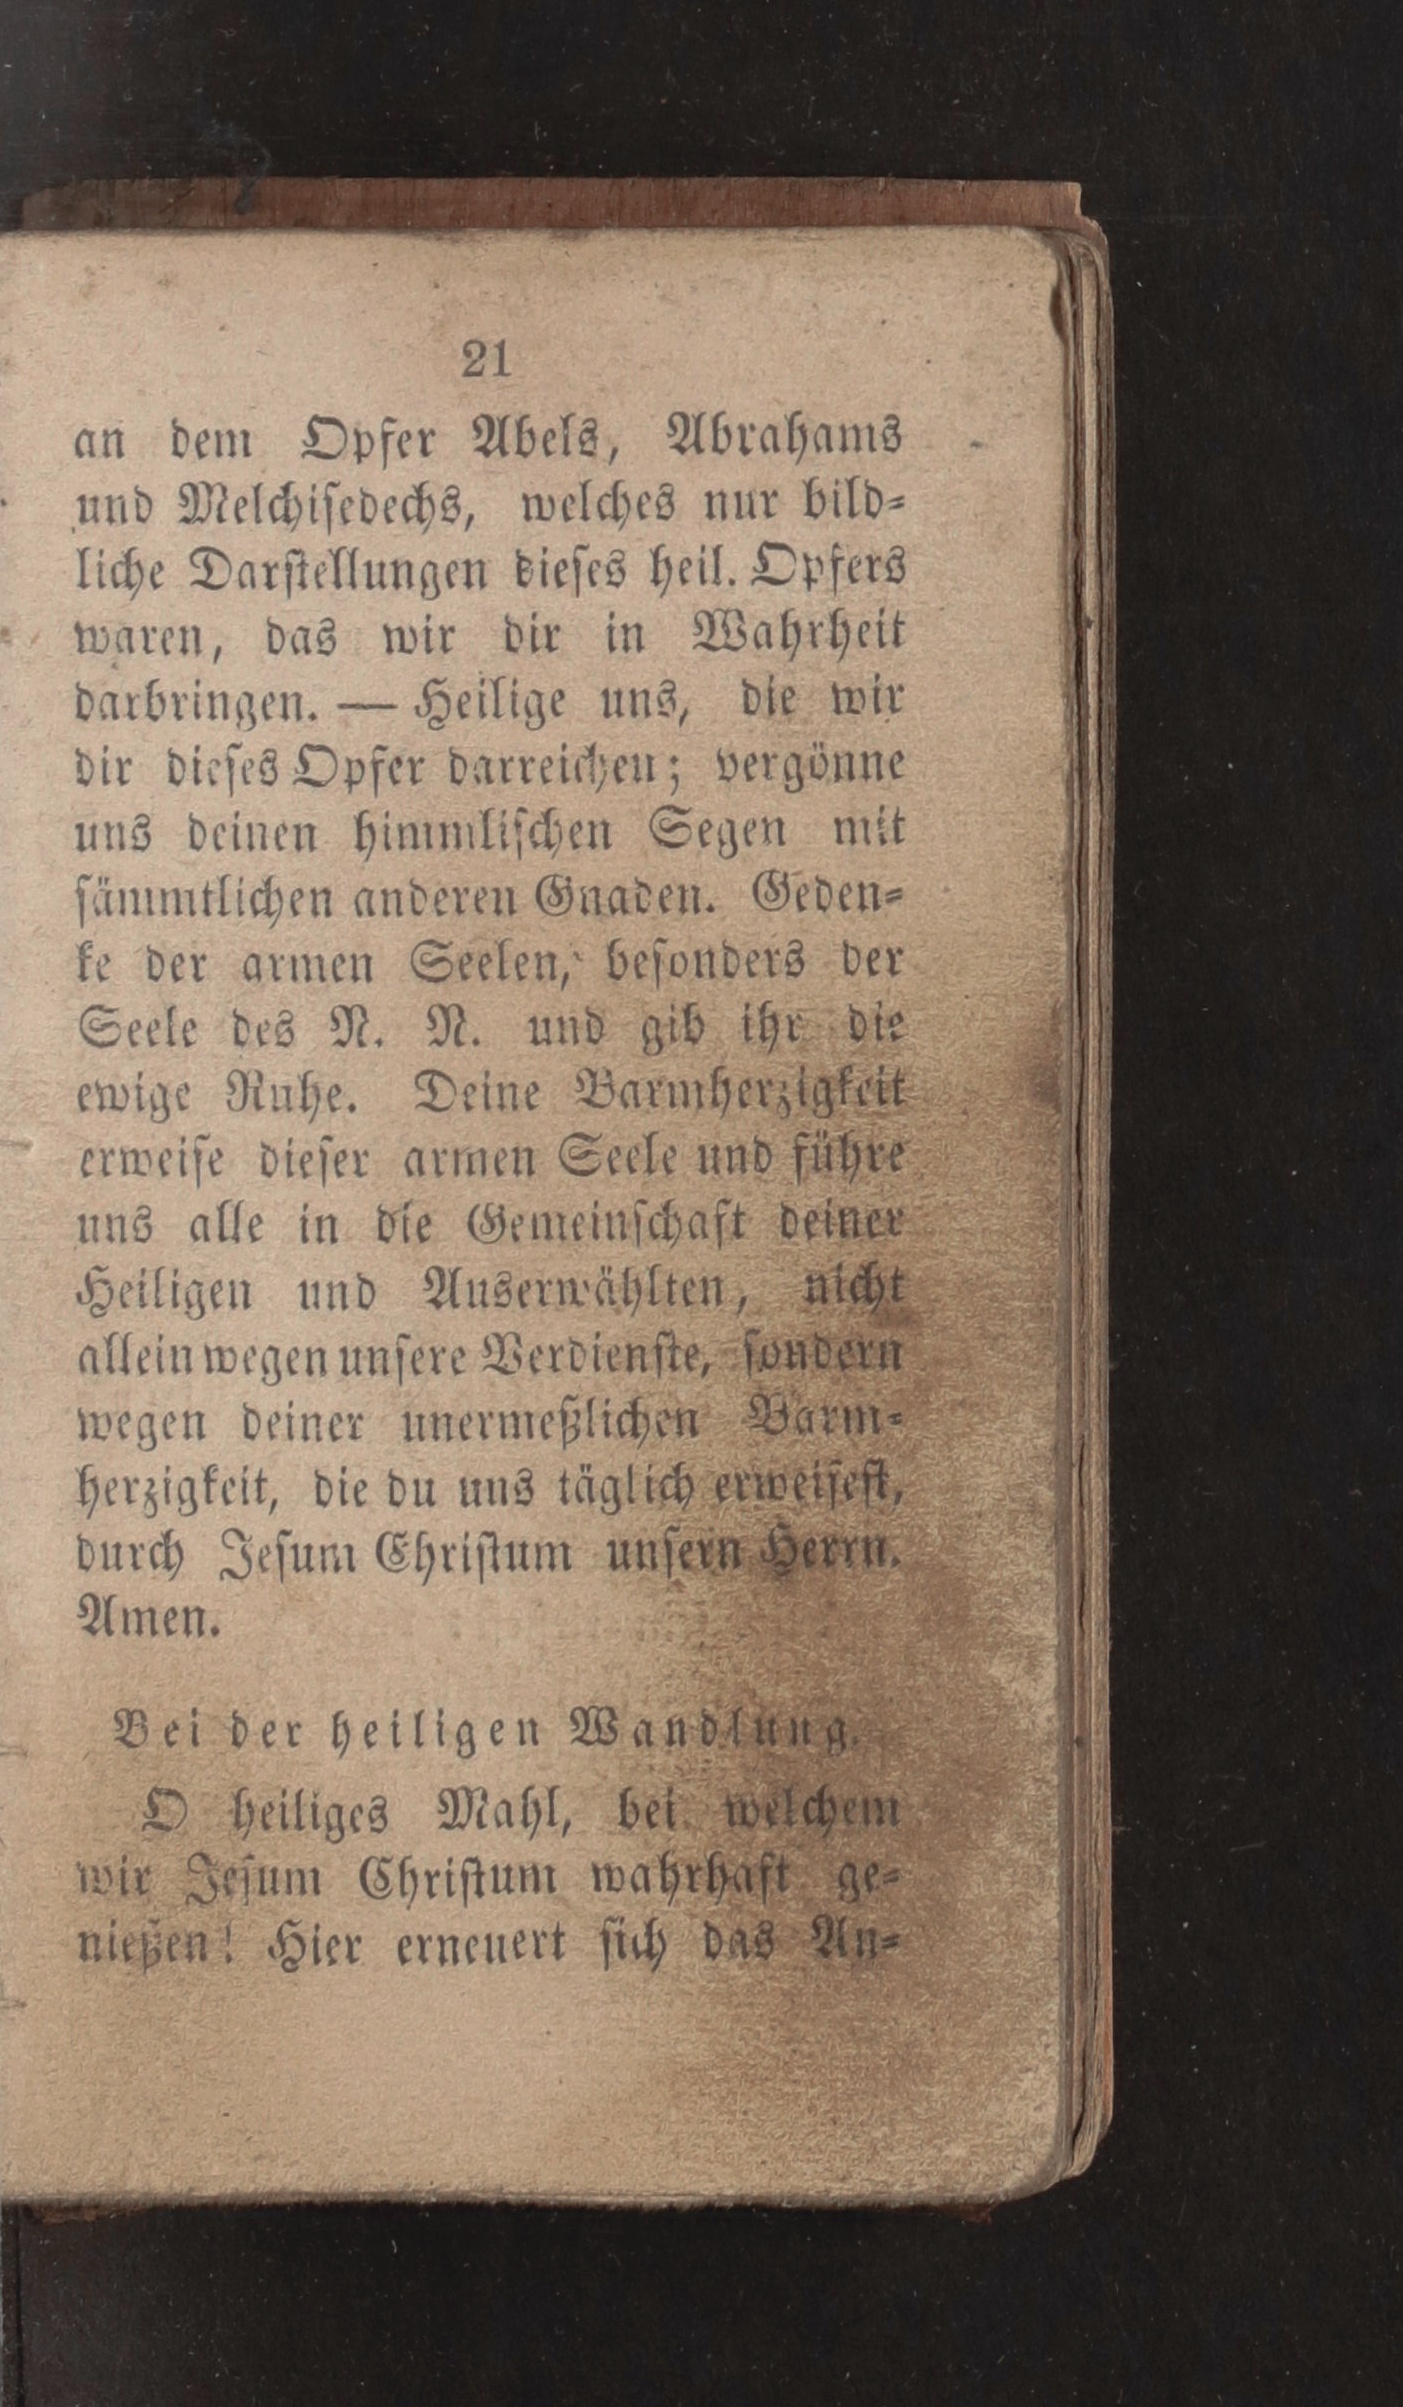 21
an dem Opfer Abels, Abrahams
und Melchisedechs, welches nur bild-
liche Darstellungen dieses heil. Opfers
waren, das wir dir in Wahrheit
darbringen. — Heilige uns, die wir
dir dieses Opfer darreichen; vergönne
uns deinen himmlischen Segen mit
sämmtlichen anderen Gnaden. Geden-
ke der armen Seelen, besonders der
Seele des N. N. und gib ihr die
ewige Ruhe. Deine Barmherzigkeit
erweise dieser armen Seele und führe
uns alle in die Gemeinschaft deiner
Heiligen und Auserwählten, nicht
allein wegen unsere Verdienste, sondern
wegen deiner unermeßlichen Barm-
herzigkeit, die du uns täglich erweisest,
durch Jesum Christum unsern Herrn.
Amen.
Bei der heiligen Wandlung.
O heiliges Mahl, bei welchem
wir Jesum Christum wahrhaft ge-
nießen! Hier erneuert sich das An-